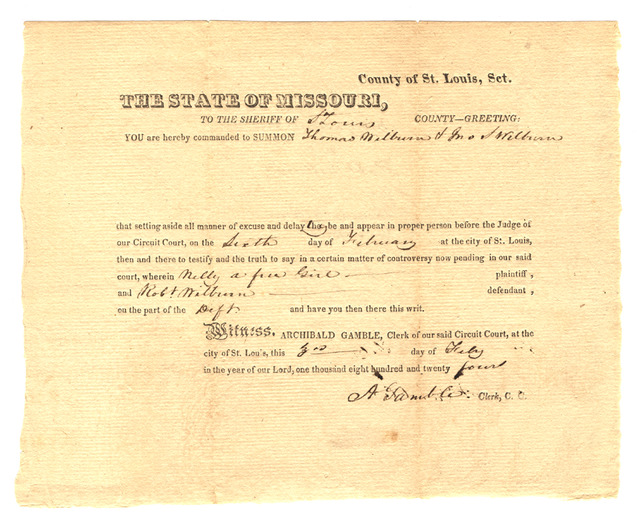 County of St. Louis, Sct.
THE STATE OF MISSOURI,
TO THE SHERIFF OF St Louis COUNTY—GREETING:
YOU are hereby commanded to SUMMON Thomas Welburn & Jno S Welburn
that setting aside all manner of excuse and delay they be and appear in proper person before the Judge of
our Circuit Court, on the Sixth day of February at the city of St. Louis,
then and there to testify and the truth to say in a certain matter of controversy now pending in our said
court, wherein Nelly a free Girl plaintiff,
and Robt Wilburn defendant,
on the part of the Deft and have you then there this writ.
Witness. ARCHIBALD GAMBLE, Clerk of our said Circuit Court, at the
city of St. Louis, this day of Feby
in the year of our Lord, one thousand eight hundred and twenty four
A Gamble Clerk, C. C.